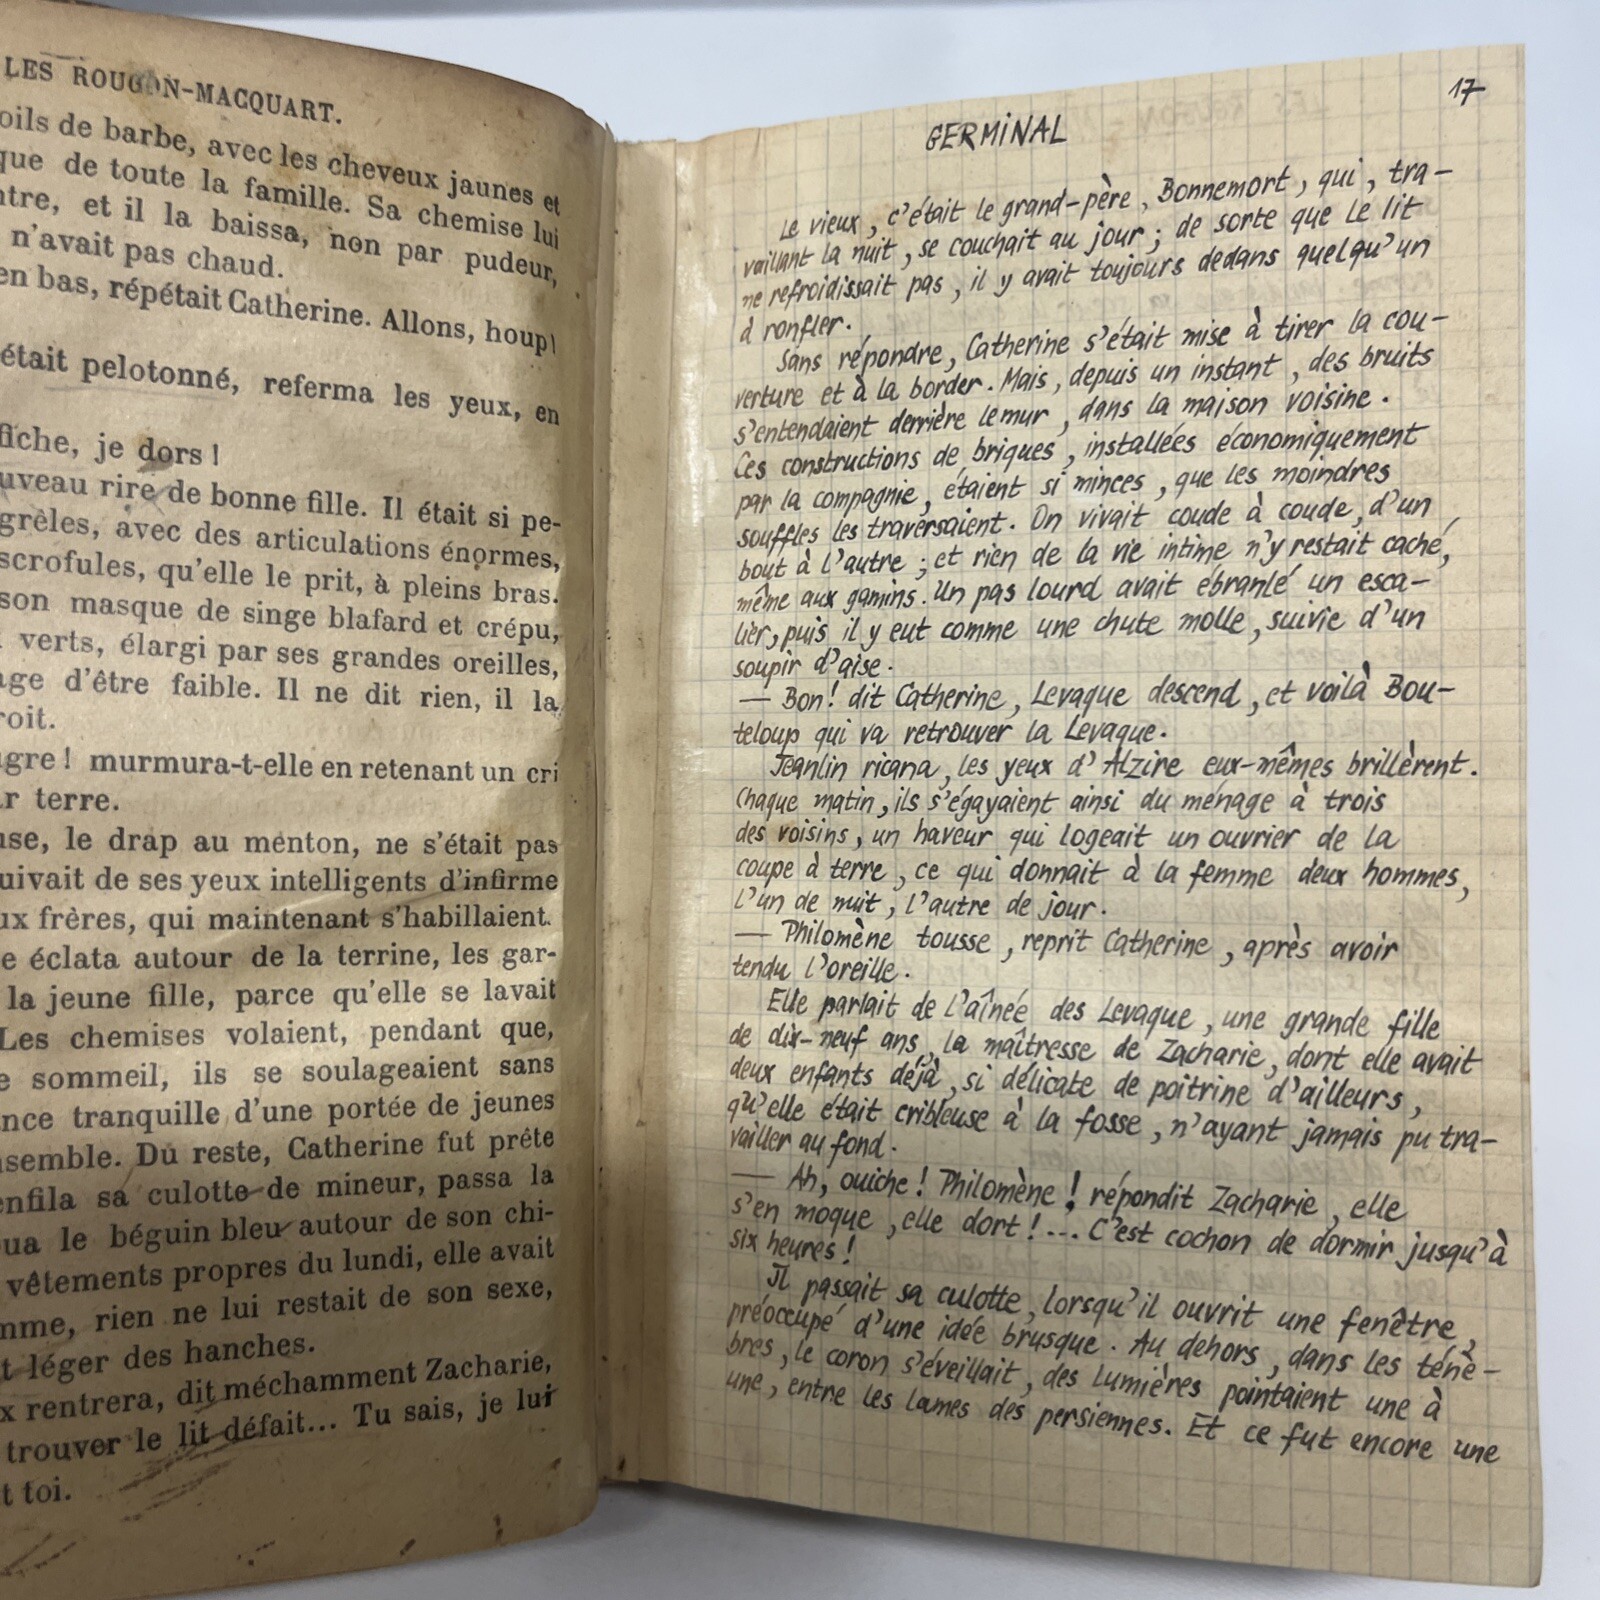 LES ROUGON-MACQUART.
oils de barbe, avec les cheveux jaunes et
que de toute la famille. Sa chemise lui
ntre, et il la baissa, non par pudeur,
n'avait pas chaud.
en bas, répétait Catherine. Allons, houp!
était pelotonné, referma les yeux, en
fiche, je dors !
uveau rire de bonne fille. Il était si pe-
grêles, avec des articulations énormes,
scrofules, qu'elle le prit, à pleins bras.
son masque de singe blafard et crépu,
verts, élargi par ses grandes oreilles,
age d'être faible. Il ne dit rien, il la
roit.
ugre ! murmura-t-elle en retenant un cri
ar terre.
use, le drap au menton, ne s'était pas
uivait de ses yeux intelligents d'infirme
ux frères, qui maintenant s'habillaient.
e éclata autour de la terrine, les gar-
la jeune fille, parce qu'elle se lavait
Les chemises volaient, pendant que,
e sommeil, ils se soulageaient sans
ance tranquille d'une portée de jeunes
nsemble. Du reste, Catherine fut prête
enfila sa culotte de mineur, passa la
oua le béguin bleu autour de son chi-
vêtements propres du lundi, elle avait
mme, rien ne lui restait de son sexe,
t léger des hanches.
x rentrera, dit méchamment Zacharie,
trouver le lit défait... Tu sais, je lui
t toi.
17
GERMINAL
Le vieux, c'était le grand-père, Bonnemort, qui, tra-
vaillant la nuit, se couchait au jour ; de sorte que le lit
ne refroidissait pas, il y avait toujours dedans quelqu'un
à ronfler.
Sans répondre, Catherine s'était mise à tirer la cou-
verture et à la border. Mais, depuis un instant, des bruits
s'entendaient derrière le mur, dans la maison voisine.
Ces constructions de briques, installées économiquement
par la compagnie, étaient si minces, que les moindres
souffles les traversaient. On vivait coude à coude, d'un
bout à l'autre ; et rien de la vie intime n'y restait caché,
même aux gamins. Un pas lourd avait ébranlé un esca-
lier, puis il y eut comme une chute molle, suivie d'un
soupir d'aise.
— Bon ! dit Catherine, Levaque descend, et voilà Bou-
teloup qui va retrouver la Levaque.
Jeanlin ricana, les yeux d'Alzire eux-mêmes brillèrent.
Chaque matin, ils s'égayaient ainsi du ménage à trois
des voisins, un haveur qui logeait un ouvrier de la
coupe à terre, ce qui donnait à la femme deux hommes,
l'un de nuit, l'autre de jour.
— Philomène tousse, reprit Catherine, après avoir
tendu l'oreille.
Elle parlait de l'aînée des Levaque, une grande fille
de dix-neuf ans, la maîtresse de Zacharie, dont elle avait
deux enfants déjà, si délicate de poitrine d'ailleurs,
qu'elle était cribleuse à la fosse, n'ayant jamais pu tra-
vailler au fond.
— Ah, ouiche ! Philomène ! répondit Zacharie, elle
s'en moque, elle dort !... C'est cochon de dormir jusqu'à
six heures !
Il passait sa culotte, lorsqu'il ouvrit une fenêtre,
préoccupé d'une idée brusque. Au dehors, dans les ténè-
bres, le coron s'éveillait, des lumières pointaient une à
une, entre les lames des persiennes. Et ce fut encore une